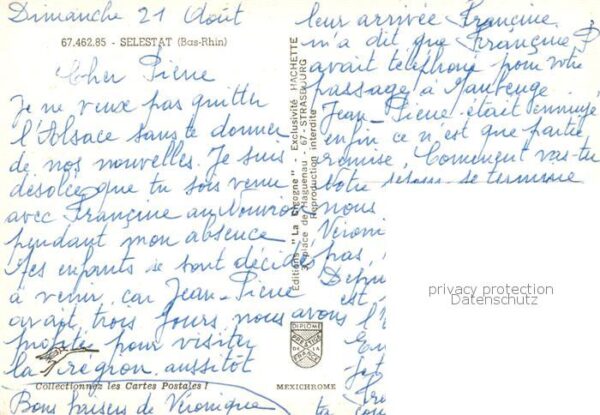 Dimanche 21 Août
67.462.85 - SELESTAT (Bas-Rhin)
Cher Pierre
Je ne veux pas quitter
l'Alsace sans te donner
de nos nouvelles. Je suis
désolée que tu sois venu
avec Françine au
pendant mon absence
Les enfants se sont décidés
à venir, car Jean-Pierre
avait trois jours, nous avons
profité pour visiter
la région. aussitôt
Collectionnez les Cartes Postales !
Bons baisers de Véronique
Editions "La Cigogne" - Exclusivité HACHETTE
place de Haguenau - 67 - STRASBOURG
Reproduction interdite
DIPLOME
PRESTIGE
DE LA
FRANCE
MEXICHROME
leur arrivée Françine
m'a dit que Françine P
avait téléphoné pour votre
passage à Maubeuge.
Jean-Pierre était ennuyé
enfin ce n'est que partie
remise, Comment vas-tu
Votre séjour se termine
nous
Véroni
pas,
Depu
est
l'
En
Jet
Fra
ta con
privacy protection
Datenschutz